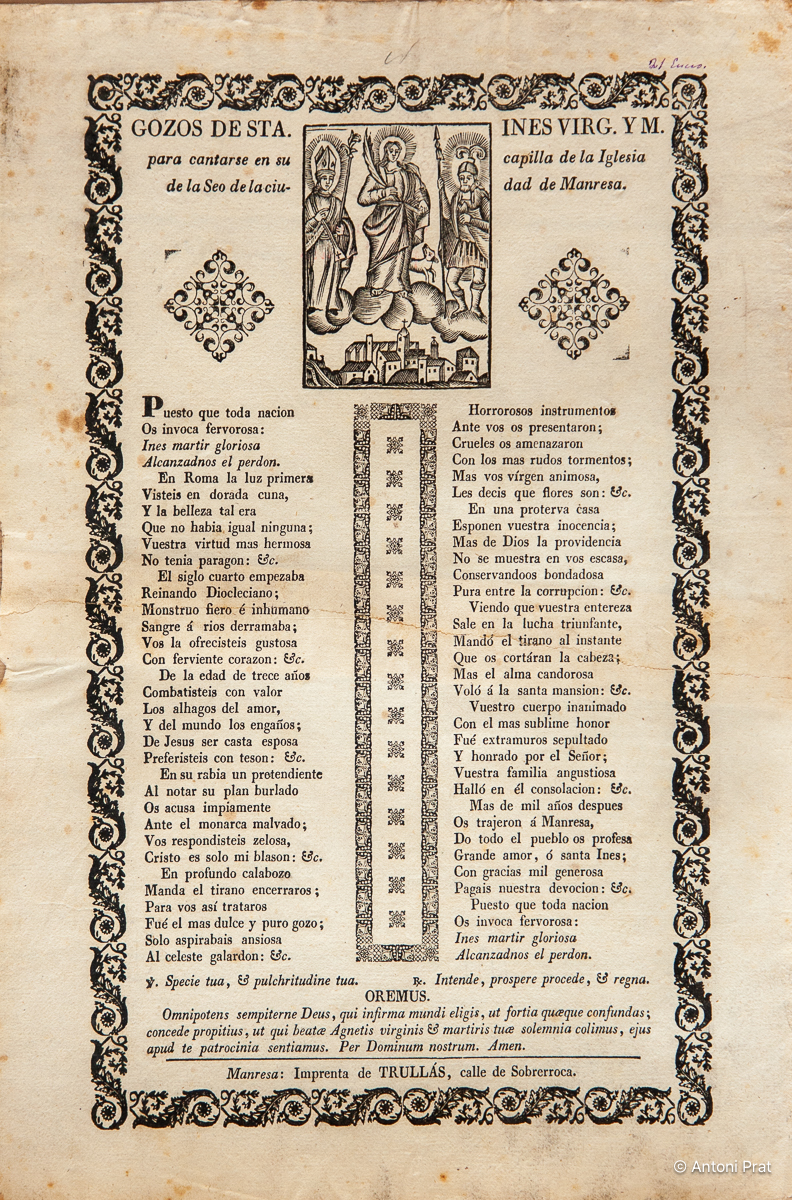 21 Enero.
GOZOS DE STA. INES VIRG. Y M.
para cantarse en su capilla de la Iglesia
de la Seo de la ciu- dad de Manresa.
Puesto que toda nacion
Os invoca fervorosa:
Ines martir gloriosa
Alcanzadnos el perdon.
En Roma la luz primera
Visteis en dorada cuna,
Y la belleza tal era
Que no habia igual ninguna;
Vuestra virtud mas hermosa
No tenia paragon: &c.
El siglo cuarto empezaba
Reinando Diocleciano;
Monstruo fiero é inhumano
Sangre á rios derramaba;
Vos la ofrecisteis gustosa
Con ferviente corazon: &c.
De la edad de trece años
Combatisteis con valor
Los alhagos del amor,
Y del mundo los engaños;
De Jesus ser casta esposa
Preferisteis con teson: &c.
En su rabia un pretendiente
Al notar su plan burlado
Os acusa impiamente
Ante el monarca malvado;
Vos respondisteis zelosa,
Cristo es solo mi blason: &c.
En profundo calabozo
Manda el tirano encerraros;
Para vos así trataros
Fué el mas dulce y puro gozo;
Solo aspirabais ansiosa
Al celeste galardon: &c.
Horrorosos instrumentos
Ante vos os presentaron;
Crueles os amenazaron
Con los mas rudos tormentos;
Mas vos vírgen animosa,
Les decis que flores son: &c.
En una proterva casa
Esponen vuestra inocencia;
Mas de Dios la providencia
No se muestra en vos escasa,
Conservandoos bondadosa
Pura entre la corrupcion: &c.
Viendo que vuestra entereza
Sale en la lucha triunfante,
Mandó el tirano al instante
Que os cortáran la cabeza;
Mas el alma candorosa
Voló á la santa mansion: &c.
Vuestro cuerpo inanimado
Con el mas sublime honor
Fué extramuros sepultado
Y honrado por el Señor;
Vuestra familia angustiosa
Halló en él consolacion: &c.
Mas de mil años despues
Os trajeron á Manresa,
Do todo el pueblo os profesa
Grande amor, ó santa Ines;
Con gracias mil generosa
Pagais nuestra devocion: &c.
Puesto que toda nacion
Os invoca fervorosa:
Ines martir gloriosa
Alcanzadnos el perdon.
℣. Specie tua, & pulchritudine tua. ℞. Intende, prospere procede, & regna.
OREMUS.
Omnipotens sempiterne Deus, qui infirma mundi eligis, ut fortia quæque confundas;
concede propitius, ut qui beatæ Agnetis virginis & martiris tuæ solemnia colimus, ejus
apud te patrocinia sentiamus. Per Dominum nostrum. Amen.
Manresa: Imprenta de TRULLÁS, calle de Sobrerroca.
© Antoni Prat